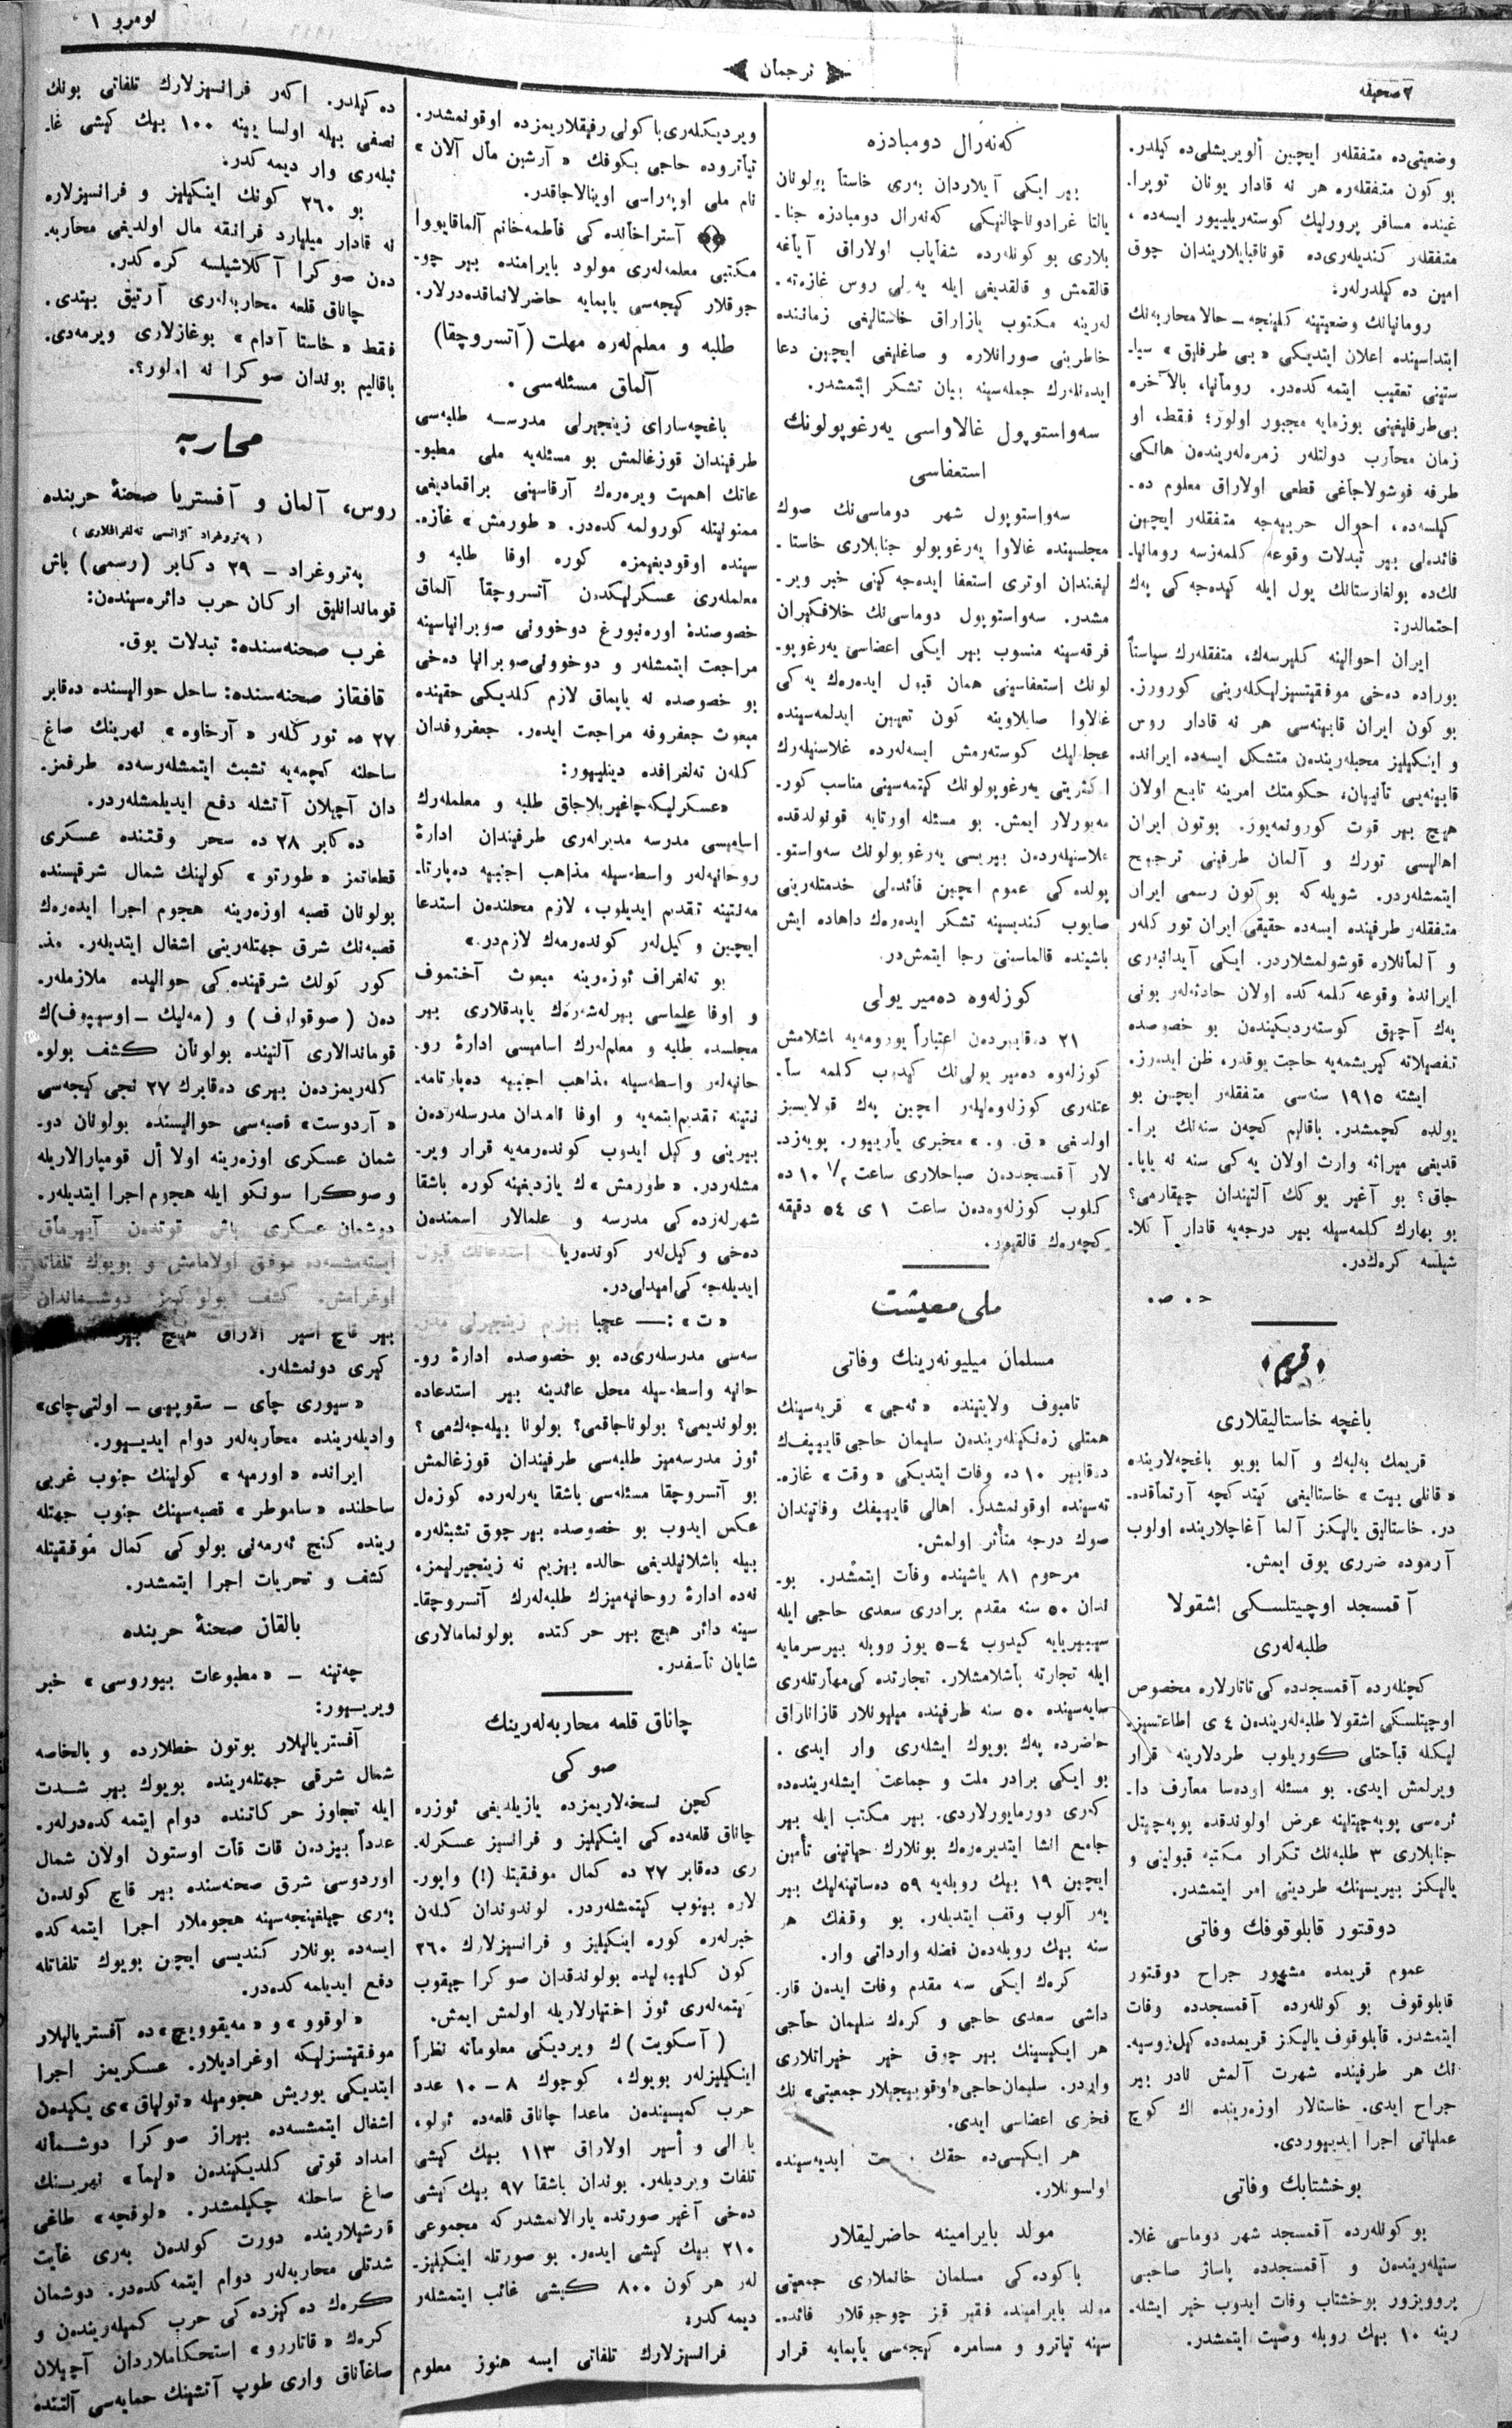 ٢ صحیفه
ترجمان
نومرو ١
وضعیتی‌ده متفقلەر ایچین ألویریشلی‌ده کیلدر.
بو کون متفقلەره هر نه قادار یونان توپرا-
غینده مسافر پرورلیك کوسته‌ریلییور ایسه‌ده،
متفقلەر کندیلەری‌ده قوناقبایلاریندان چوق
امین ده کیلدرلەر.
رومانیانك وضعیتینه کلینجه – حالا محاربه‌نك
ابتداسینده اعلان ایتدیکی «بی طرفلق» سیا-
ستینی تعقیب ایتمه کده‌در. رومانیا، بالآخره
بی‌طرفلیغینی بوزمایه مجبور اولور؛ فقط، او
زمان محارب دولتلەر زمره‌لەریندەن هانکی
طرفه قوشولاجاغی قطعی اولاراق معلوم ده-
کیلسه‌ده، احوال حربیه‌جه متفقلەر ایچین
فائده‌لی بیر تبدلات وقوعه کلمه‌زسه رومانیا-
نك‌ده بولغارستانك یول ایله کیده‌جه کی پەك
احتمالدر.
ایران احوالینه کلیرسەك، متفقلەرك سیاستاً
بوراده دەخی موفقیتسیزلیکلەرینی کورورز.
بو کون ایران قابینه‌سی هر نه قادار روس
و اینکیلیز محبلەریندەن متشکل ایسه‌ده ایرانده
قابینه‌یی تأنییان، حکومتك امرینه تابع اولان
هیچ بیر قوت کورونمه‌یور. بوتون ایران
اهالیسی تورك و آلمان طرفینی ترجیح
ایتمشلەردر. شویله‌که بو کون رسمی ایران
متفقلەر طرفینده ایسه‌ده حقیقی ایران تور کلەر
و آلمانلاره قوشولمشلاردر. ایکی آیدانبەری
ایراندۀ وقوعه کلمه کده اولان حادثه‌لەر بونی
پەك آچیق کوسته‌ردیکیندەن بو خصوصده
تفصیلاته کیریشمه‌یه حاجت یوقدر، ظن ایدەرز.
ایشته ١٩١٥ سنه‌سی متفقلەر ایچین بو
یولده کچمشدر. باقالیم کچەن سنه‌نك برا-
قدیغی میراثه وارث اولان یه کی سنه نه یاپا-
جاق؟ بو آغیر یوکك آلتیندان چیقارمی؟
بو بهارك کلمه‌سیله بیر درجه‌یه قادار آ کلا-
شیلسه کرەك‌در.
ح. ص.
«قریم»
باغچه خاستالیقلاری
قریمك بەلبەك و آلما بویو باغچه‌لارینده
«قانلی بیت» خاستالیغی کیتد کچه آرتماقده-
در. خاستالیق یالیکز آلما آغاچلارینده اولوب
آرموده ضرری یوق ایمش.
آقمسجد اوچیتلسکی اشقولا
طلبه‌لەری
کچنلەرده آقمسجدده کی تاتارلاره مخصوص
اوچیتلسکی اشقولا طلبه‌لەریندەن ٤ ی اطاعتسیز-
لیکله قباحتلی کوریلوب طردلارینه قرار
ویرلمش ایدی. بو مسئله اودەسا معارف دا-
ئرەسی پوپه‌چیتلینه عرض اولوندقده پوپه‌چیتل
جنابلاری ٣ طلبه‌نك تکرار مکتبه قبولینی و
یالیکز بیریسینك طردینی امر ایتمشدر.
دوقتور قابلوقوفك وفاتی
عموم قریمده مشهور جراح دوقتور
قابلوقوف بو کونلەرده آقمسجدده وفات
ایتمشدر. قابلوقوف یالیکز قریمده‌ده کیل روسیه-
نك هر طرفینده شهرت آلمش نادر بیر
جراح ایدی. خاستالار اوزەرینده اك کوچ
عملیاتی اجرا ایدییوردی.
بوخشتابك وفاتی
بو کونلەرده آقمسجد شهر دوماسی غلا-
سنیلەریندەن و آقمسجدده پاساژ صاحبی
پروویزور بوخشتاب وفات ایدوب خیر ایشله-
رینه ١٠ بیك روبله وصیت ایتمشدر.
کەنەرال دومبادزه
بیر ایکی آیلاردان بەری خاستا بولونان
یالتا غرادوناچالنیکی کەنەرال دومبادزه جنا-
بلاری بو کونلەرده شفایاب اولاراق آیاغه
قالقمش و قالقدیغی ایله یەرلی روس غازەته-
لەرینه مکتوب یازاراق خاستالیغی زماننده
خاطرینی صورانلاره و صاغلیغی ایچین دعا
ایدەنلەرك جمله‌سینه بیان تشکر ایتمشدر.
سەواستوپول غالاواسی یەرغوپولونك
استعفاسی
سەواستوپول شهر دوماسی‌نك صوك
مجلسینده غالاوا یەرغوپولو جنابلاری خاستا-
لیغندان اوتری استعفا ایده‌جه کینی خبر ویر-
مشدر. سەواستوپول دوماسی‌نك خلافکیران
فرقه‌سینه منسوب بیر ایکی اعضاسی یەرغوپو-
لونك استعفاسینی همان قبول ایدەرەك یه کی
غالاوا صایلاوینه کون تعیین ایدلمه‌سینده
عجله‌لیك کوستەرمش ایسه‌لەرده غلاسنیلەرك
اکثریتی یەرغوپولونك کیتمه‌سینی مناسب کور-
مه‌یورلار ایمش. بو مسئله اورتایه قونولدقده
غلاسنیلەردەن بیریسی یەرغوپولونك سەواستو-
پولده کی عموم ایچین فائده‌لی خدمتلەرینی
صایوب کندیسینه تشکر ایدەرەك داهاده ایش
باشینده قالماسینی رجا ایتمش‌در.
کوزلەوه دەمیر یولی
٢١ دەقابیردەن اعتباراً یورومه‌یه باشلامش
کوزلەوه دەمیر یولی‌نك کیدوب کلمه سا-
عتلەری کوزلەوه‌لیلەر ایچین پەك قولایسیز
اولدیغی «ق. و.» مخبری یازییور. پویەزد-
لار آقمسجددەن صباحلاری ساعت ١٠ ١/٢ ده
کلوب کوزلەوه‌دەن ساعت ١ ی ٥٤ دقیقه
کچەرەك قالقیور.
ملی معیشت
مسلمان میلیونەرینك وفاتی
تامبوف ولایتینده «ئه‌جی» قریه‌سینك
همتلی زەنکینلەریندەن سلیمان حاجی قاییبفك
دەقابیر ١٠ ده وفات ایتدیکی «وقت» غازه-
ته‌سینده اوقونمشدر. اهالی قاییبفك وفاتیندان
صوك درجه متأثر اولمش.
مرحوم ٨١ یاشینده وفات ایتمشدر. بو-
ندان ٥٠ سنه مقدم برادری سعدی حاجی ایله
سیبیریایه کیدوب ٤–٥ یوز روبله بیر سرمایه
ایله تجارته باشلامشلار. تجارتده کی مهارتلەری
سایه‌سینده ٥٠ سنه ظرفینده میلیونلار قازاناراق
حاضرده پەك بویوك ایشلەری وار ایدی.
بو ایکی برادر ملت و جماعت ایشلەرینده‌ده
کەری دورمایورلاردی. بیر مکتب ایله بیر
جامع انشا ایتدیرەرەك بونلارك حیاتینی تأمین
ایچین ١٩ بیك روبله‌یه ٥٩ دەساتینه‌لیك بیر
یەر آلوب وقف ایتدیلەر. بو وقفك هر
سنه بیك روبله‌دەن فضله وارداتی وار.
کرەك ایکی سه مقدم وفات ایدەن قار-
داشی سعدی حاجی و کرەك سلیمان حاجی
هر ایکیسینك بیر چوق خیر خیراتلاری
واردر. سلیمان حاجی «اوقوبیجیلار جمعیتی» نك
فخری اعضاسی ایدی.
هر ایکیسی‌ده حقك ت ابدیه‌سینده
اولسونلار.
مولد بایرامینه حاضرلیقلار
باکوده کی مسلمان خانملاری جمعیتی
مولد بایرامینده فقیر قیز چوجوقلار فائده-
سینه تیاترو و مسامره کیجه‌سی یاپمایه قرار
ویردیکلەری باکولی رفیقلاریمزده اوقونمشدر.
تیاتروده حاجی بکوفك «آرشین مال آلان»
نام ملی اوپەراسی اوینالاجاقدر.
آستراخانده کی فاطمه خانم آلماقایووا
مکتبی معلمه‌لەری مولود بایرامنده بیر چو-
جوقلار کیجه‌سی یاپمایه حاضرلانماقده‌درلار.
طلبه و معلم‌لەره مهلت (آتسروچقا)
آلماق مسئله‌سی.
باغچه‌سارای زینجیرلی مدرسه طلبه‌سی
طرفیندان قوزغالمش بو مسئله‌یه ملی مطبو-
عاتك اهمیت ویرەرەك آرقاسینی براقمادیغی
ممنونیتله کورولمه کده‌در. «طورمش» غازه-
سینده اوقودیغیمزه کوره اوفا طلبه و
معلملەری عسکرلیکدەن آتسروچقا آلماق
خصوصندۀ اورەنبورغ دوخوونی صوبرانیاسینه
مراجعت ایتمشلەر و دوخوونی‌صوبرانیا دەخی
بو خصوصده نه یاپماق لازم کلدیکی حقینده
مبعوث جعفروفه مراجعت ایدەر. جعفروفدان
کلەن تەلغرافده دینلیور:
«عسکرلیکه چاغیریلاجاق طلبه و معلملەرك
اسامیسی مدرسه مدیرلەری طرفیندان ادارۀ
روحانیه‌لەر واسطه‌سیله مذاهب اجنبیه دەپارتا-
مەنتینه تقدیم ایدیلوب، لازم محلندەن استدعا
ایچین وکیل‌لەر کوندەرمەك لازم‌در.»
بو تەلغراف ئوزەرینه مبعوث آختموف
و اوفا علماسی بیرلەشەرەك یاپدقلاری بیر
مجلسده طلبه و معلم‌لەرك اسامیسی ادارۀ رو-
حانیه‌لەر واسطه‌سیله مذاهب اجنبیه دەپارتامه-
نتینه تقدیم‌ایتمه‌یه و اوفا نامندان مدرسلەردەن
بیرینی وکیل ایدوب کوندەرمه‌یه قرار ویر-
مشلەردر. «طورمش»ك یازدیغینه کوره باشقا
شهرلەرده کی مدرسه و علمالار اسمندەن
دەخی وکیل‌لەر کوندەریا استدعانك قبول
ایدیله‌جه کی‌امیدلی‌در.
«ت»: – عجبا بیزیم زینجیرلی مدر-
سه‌سی مدرسلەری‌ده بو خصوصده ادارۀ رو-
حانیه واسطه‌سیله محل عائدینه بیر استدعاده
بولوندیمی؟ بولوناجاقمی؟ بولونا بیله‌جه‌ك‌می؟
ئوز مدرسه‌میز طلبه‌سی طرفیندان قوزغالمش
بو آتسروچقا مسئله‌سی باشقا یەرلەرده کوزەل
عکس ایدوب بو خصوصده بیر چوق تشبثلەره
بیله باشلانیلدیغی حالده بیزیم نه زینجیرلیمز،
نه‌ده ادارۀ روحانیه‌میزك طلبه‌لەرك آتسروچقا-
سینه دائر هیچ بیر حرکتده بولونمامالاری
شایان تأسفدر.
چاناق قلعه محاربه‌لەرینك
صو کی
کچن نسخه‌لاریمزده یازیلدیغی ئوزره
چاناق قلعه‌ده کی اینکیلیز و فرانسیز عسکرله-
ری دەقابر ٢٧ ده کمال موفقیتلا (!) واپور-
لاره بینوب کیتمشلەردر. لوندوندان کلەن
خبرلەره کوره اینکیلیز و فرانسیزلارك ٢٦٠
کون کلیبولیده بولوندقدان صوکرا چیقوب
کیتمه‌لەری ئوز اختیارلاریله اولمش ایمش.
(آسکویت)ك ویردیکی معلوماته نظراً
اینکیلیزلەر بویوك، کوچوك ٨–١٠ عدد
حرب کمیسیندەن ماعدا چاناق قلعه‌ده ئولو،
یارالی و أسیر اولاراق ١١٣ بیك کیشی
تلفات ویردیلەر. بوندان باشقا ٩٧ بیك کیشی
دەخی آغیر صورتده یارالانمشدر که مجموعی
٢١٠ بیك کیشی ایدەر. بو صورتله اینکیلیز-
لەر هر کون ٨٠٠ کیشی غائب ایتمشلەر
دیمه کدر.
فرانسیزلارك تلفاتی ایسه هنوز معلوم
ده کیلدر. اکەر فرانسیزلارك تلفاتی بونك
نصفی بیله اولسا یینه ١٠٠ بیك کیشی غا-
ئبلەری وار دیمه کدر.
بو ٢٦٠ کونك اینکیلیز و فرانسیزلاره
نه قادار میلیارد فرانقه مال اولدیغی محاربه-
دەن صوکرا آ کلاشیلسه کرەکدر.
چاناق قلعه محاربه‌لەری آرتیق بیتدی.
فقط «خاستا آدام» بوغازلاری ویرمه‌دی.
باقالیم بوندان صوکرا نه اولور؟.
محاربه
روس، آلمان و آفستریا صحنۀ حربنده
(پەتروغراد آژانسی تەلغرافلاری)
پەتروغراد – ٢٩ دکابر (رسمی) باش
قوماندانلیق ارکان حرب دائرەسیندەن:
غرب صحنه‌سنده: تبدلات یوق.
قافقاز صحنه‌سنده: ساحل حوالیسنده دەقابر
٢٧ ده تورکلەر «آرخاوه» نهرینك صاغ
ساحلنه کچمه‌یه تشبث ایتمشلەرسه‌ده طرفمز-
دان آچیلان آتشله دفع ایدیلمشلەردر.
دەکابر ٢٨ ده سحر وقتنده عسکری
قطعاتمز «طورتو» کولینك شمال شرقیسنده
بولونان قصبه اوزەرینه هجوم اجرا ایدەرەك
قصبه‌نك شرق جهتلەرینی اشغال ایتدیلەر. مذ-
کور کولك شرقینده کی حوالیده ملازملەر-
دەن (صوقولوف) و (مەلیك–اوسیپوف)ك
قوماندالاری آلتینده بولونان کشف بولو-
کلەریمزدەن بیری دەقابرك ٢٧ نجی کیجه‌سی
«آردوست» قصبه‌سی حوالیسنده بولونان دو-
شمان عسکری اوزەرینه اولا أل قومبارالاریله
و صوکرا سونکو ایله هجوم اجرا ایتدیلەر.
دوشمان عسکری باش قوتدەن آییرماق
ایسته‌مشسه‌ده موفق اولامامش و بویوك تلفاته
اوغرامش. کشف بولوکیمز دوشماندان
بیر قاچ اسیر الاراق هیچ بیر
کیری دونمشلەر.
«سیوری چای – سقوپیی – اولتی‌چای»
وادیلەرینده محاربه‌لەر دوام ایدییور.
ایرانده «اورمیه» کولینك جنوب غربی
ساحلنده «ساموطر» قصبه‌سینك جنوب جهتله-
رینده کنج ئەرمه‌نی بولوکی کمال مؤفقیتله
کشف و تحریات اجرا ایتمشدر.
بالقان صحنۀ حربنده
چەتینه – «مطبوعات بیوروسی» خبر
ویرییور:
آفستریالیلار بوتون خطلارده و بالخاصه
شمال شرقی جهتلەرینده بویوك بیر شدت
ایله تجاوز حرکاتنده دوام ایتمه کده‌درلەر.
عدداً بیزدەن قات قات اوستون اولان شمال
اوردوسی شرق صحنه‌سنده بیر قاچ کوندەن
بەری چیلغینجه‌سینه هجوملار اجرا ایتمه کده
ایسه‌ده بونلار کندیسی ایچین بویوك تلفاتله
دفع ایدیلمه کده‌در.
«لوقوو» و «مەیقوویچ» ده آفستریالیلار
موفقیتسزلیکه اوغرادیلار. عسکریمز اجرا
ایتدیکی یوریش هجومیله «تولیاق»ی یکیدەن
اشغال ایتمشسه‌ده بیراز صوکرا دوشمانه
امداد قوتی کلدیکیندەن «لیما» نهریسنك
صاغ ساحلنه چکیلمشدر. «لوقچه» طاغی
قارشیلارینده دورت کوندەن بەری غایت
شدتلی محاربه‌لەر دوام ایتمه کده‌در. دوشمان
کرەك ده کیزده کی حرب کمیلەریندەن و
کرەك «قاتاررو» استحکاملاردان آچیلان
صاغاناق واری طوپ آتشینك حمایه‌سی آلتنده